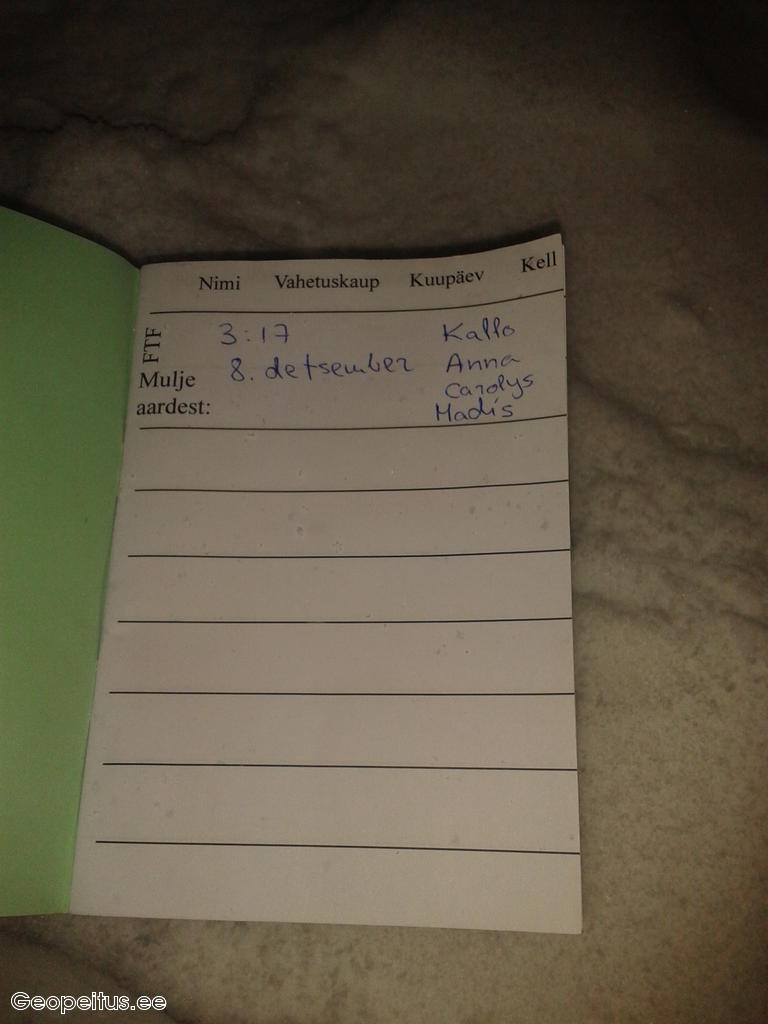 Nimi Vahetuskaup Kuupäev Kell
FTF
3:17 Kallo
8. detsember Anna
Mulje
Carolys
aardest: Madis
Geopeitus.ee